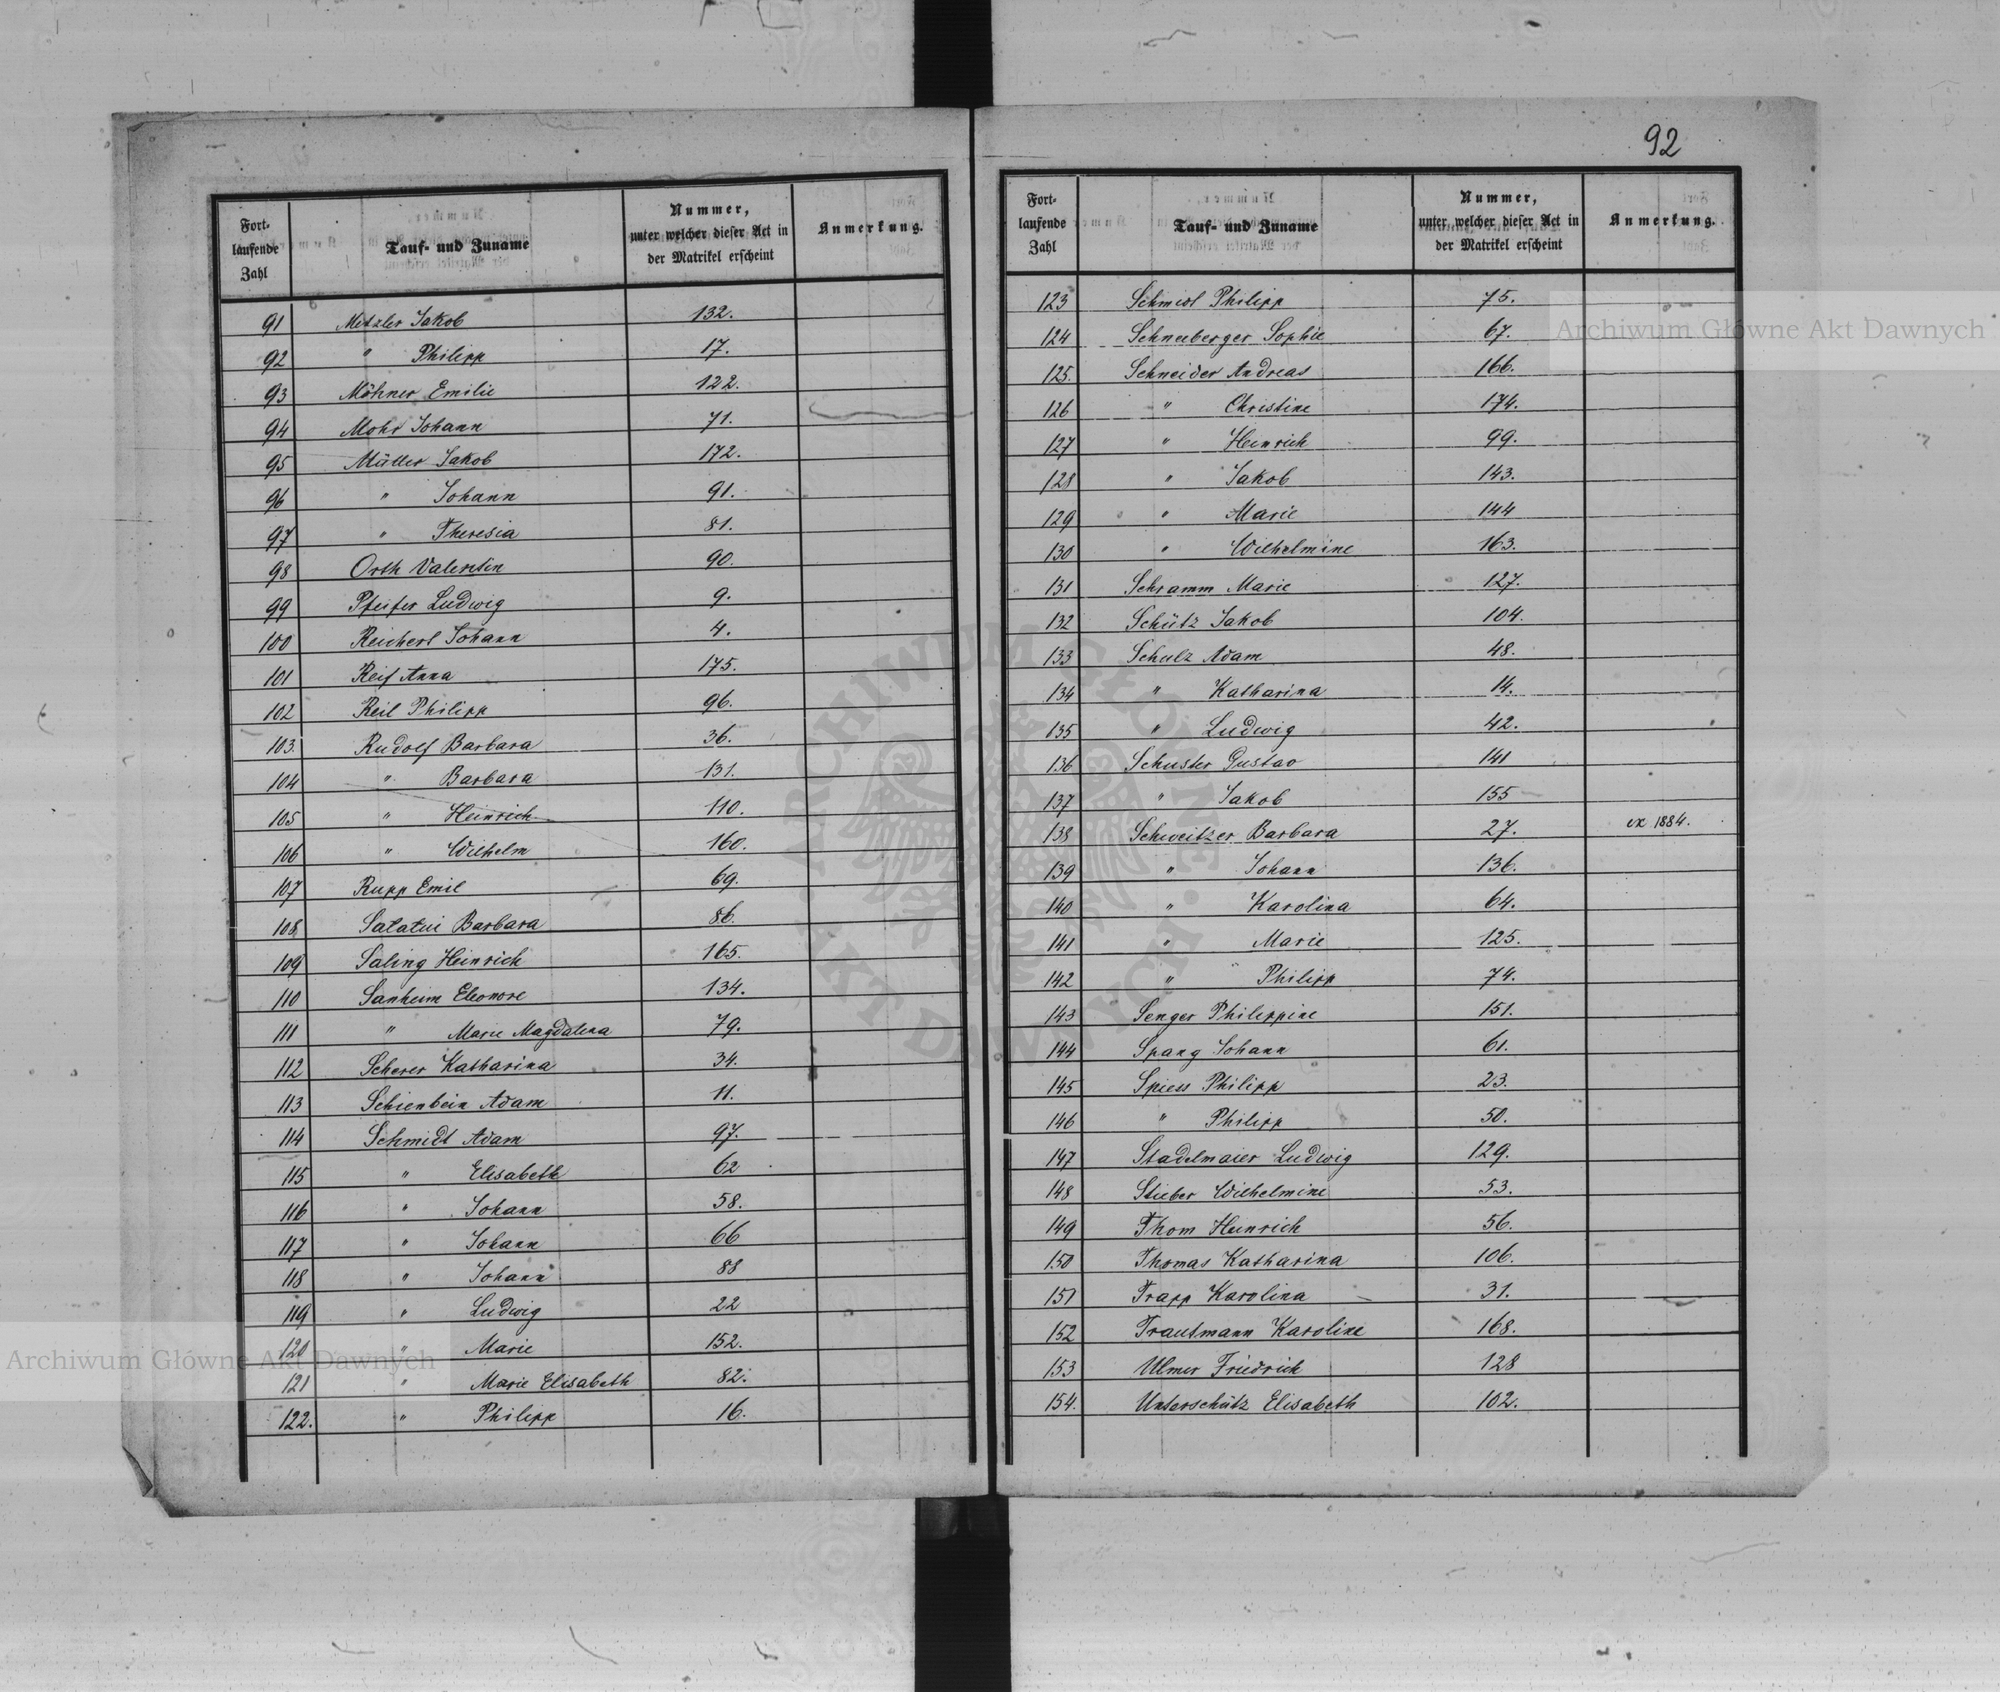 92
Fort-
laufende
Zahl
Tauf- und Zuname
Nummer,
unter welcher dieser Act in
der Matrikel erscheint
Anmerkung.
91 Metzler Jakob 132.
92 " Philipp 17.
93 Möhner Emilie 122.
94 Mohr Johann 71.
95 Müller Jakob 172.
96 " Johann 91.
97 " Theresia 81.
98 Orth Valentin 90.
99 Pfeifer Ludwig 9.
100 Reichert Johann 4.
101 Reif Anna 175.
102 Reil Philipp 96.
103 Rudolf Barbara 36.
104 " Barbara 131.
105 " Heinrich 110.
106 " Wilhelm 160.
107 Rupp Emil 69.
108 Barbara 86.
109 Saling Heinrich 165.
110 Sanheim Eleonore 134.
111 " Marie Magdalena 79.
112 Scherer Katharina 34.
113 Schienbein Adam 11.
114 Schmidt Adam 97.
115 " Elisabeth 62
116 " Johann 58.
117 " Johann 66
118 " Johann 88
119 " Ludwig 22
120 " Marie 152.
121 " Marie Elisabeth 82.
122. " Philipp 16.
Fort-
laufende
Zahl
Tauf- und Zuname
Nummer,
unter welcher dieser Act in
der Matrikel erscheint
Anmerkung.
123 Schmidt Philipp 75.
124 Schneeberger Sophie 67.
125. Schneider Andreas 166.
126 " Christine 174.
127 " Heinrich 99.
128 " Jakob 143.
129 " Marie 144
130 " Wilhelmine 163.
131 Schramm Marie 127.
132 Schütz Jakob 104.
133 Schulz Adam 48.
134 " Katharina 14.
135 " Ludwig 42.
136 Schuster Gustav 141
137 " Jakob 155
138 Schweitzer Barbara 27. ex 1884.
139 " Johann 136.
140 " Karolina 64.
141 " Marie 125.
142 " Philipp 74.
143 Senger Philippine 151.
144 Spang Johann 61.
145 Spiess Philipp 23.
146 " Philipp 50.
147 Stadelmaier Ludwig 129.
148 Stieber Wilhelmine 53.
149 Thom Heinrich 56.
150 Thomas Katharina 106.
151 Trapp Karolina 31.
152 Trautmann Karoline 168.
153 Ulmer Friedrich 128
154. Unterschütz Elisabeth 102.
Archiwum Główne Akt Dawnych
Archiwum Główne Akt Dawnych
ARCHIWUM GŁÓWNE AKT DAWNYCH